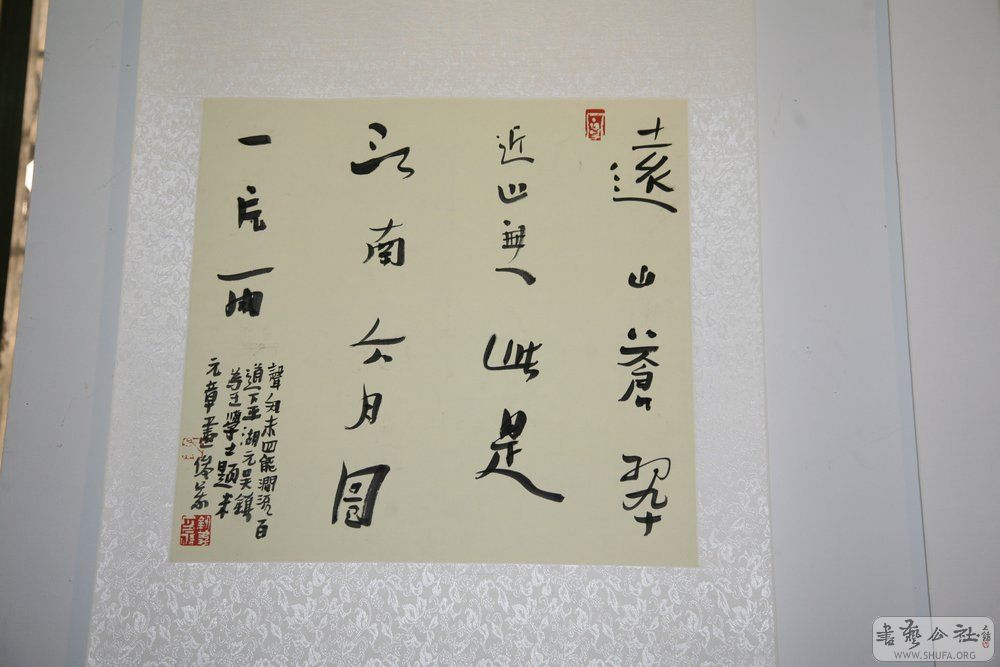 遠山蒼翠
近山無此是
江南六月圖
一片雨
聲知未罷澗流百
道下平湖元吳鎮
為王學士題米
元章畫
書藝公社
WWW.SHUFA.ORG